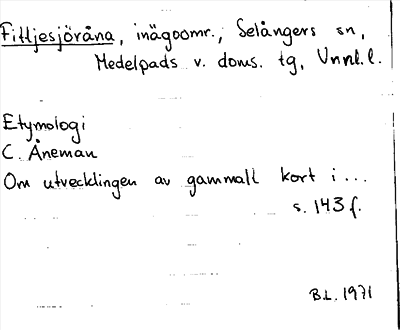 Fittjesjöråna, inägoomr., Selångers sn,
Medelpads v. doms. tg, Vnnl. l.
Etymologi
C. Åneman
Om utvecklingen av gammalt kort i...
s. 143 f.
B.L. 1971